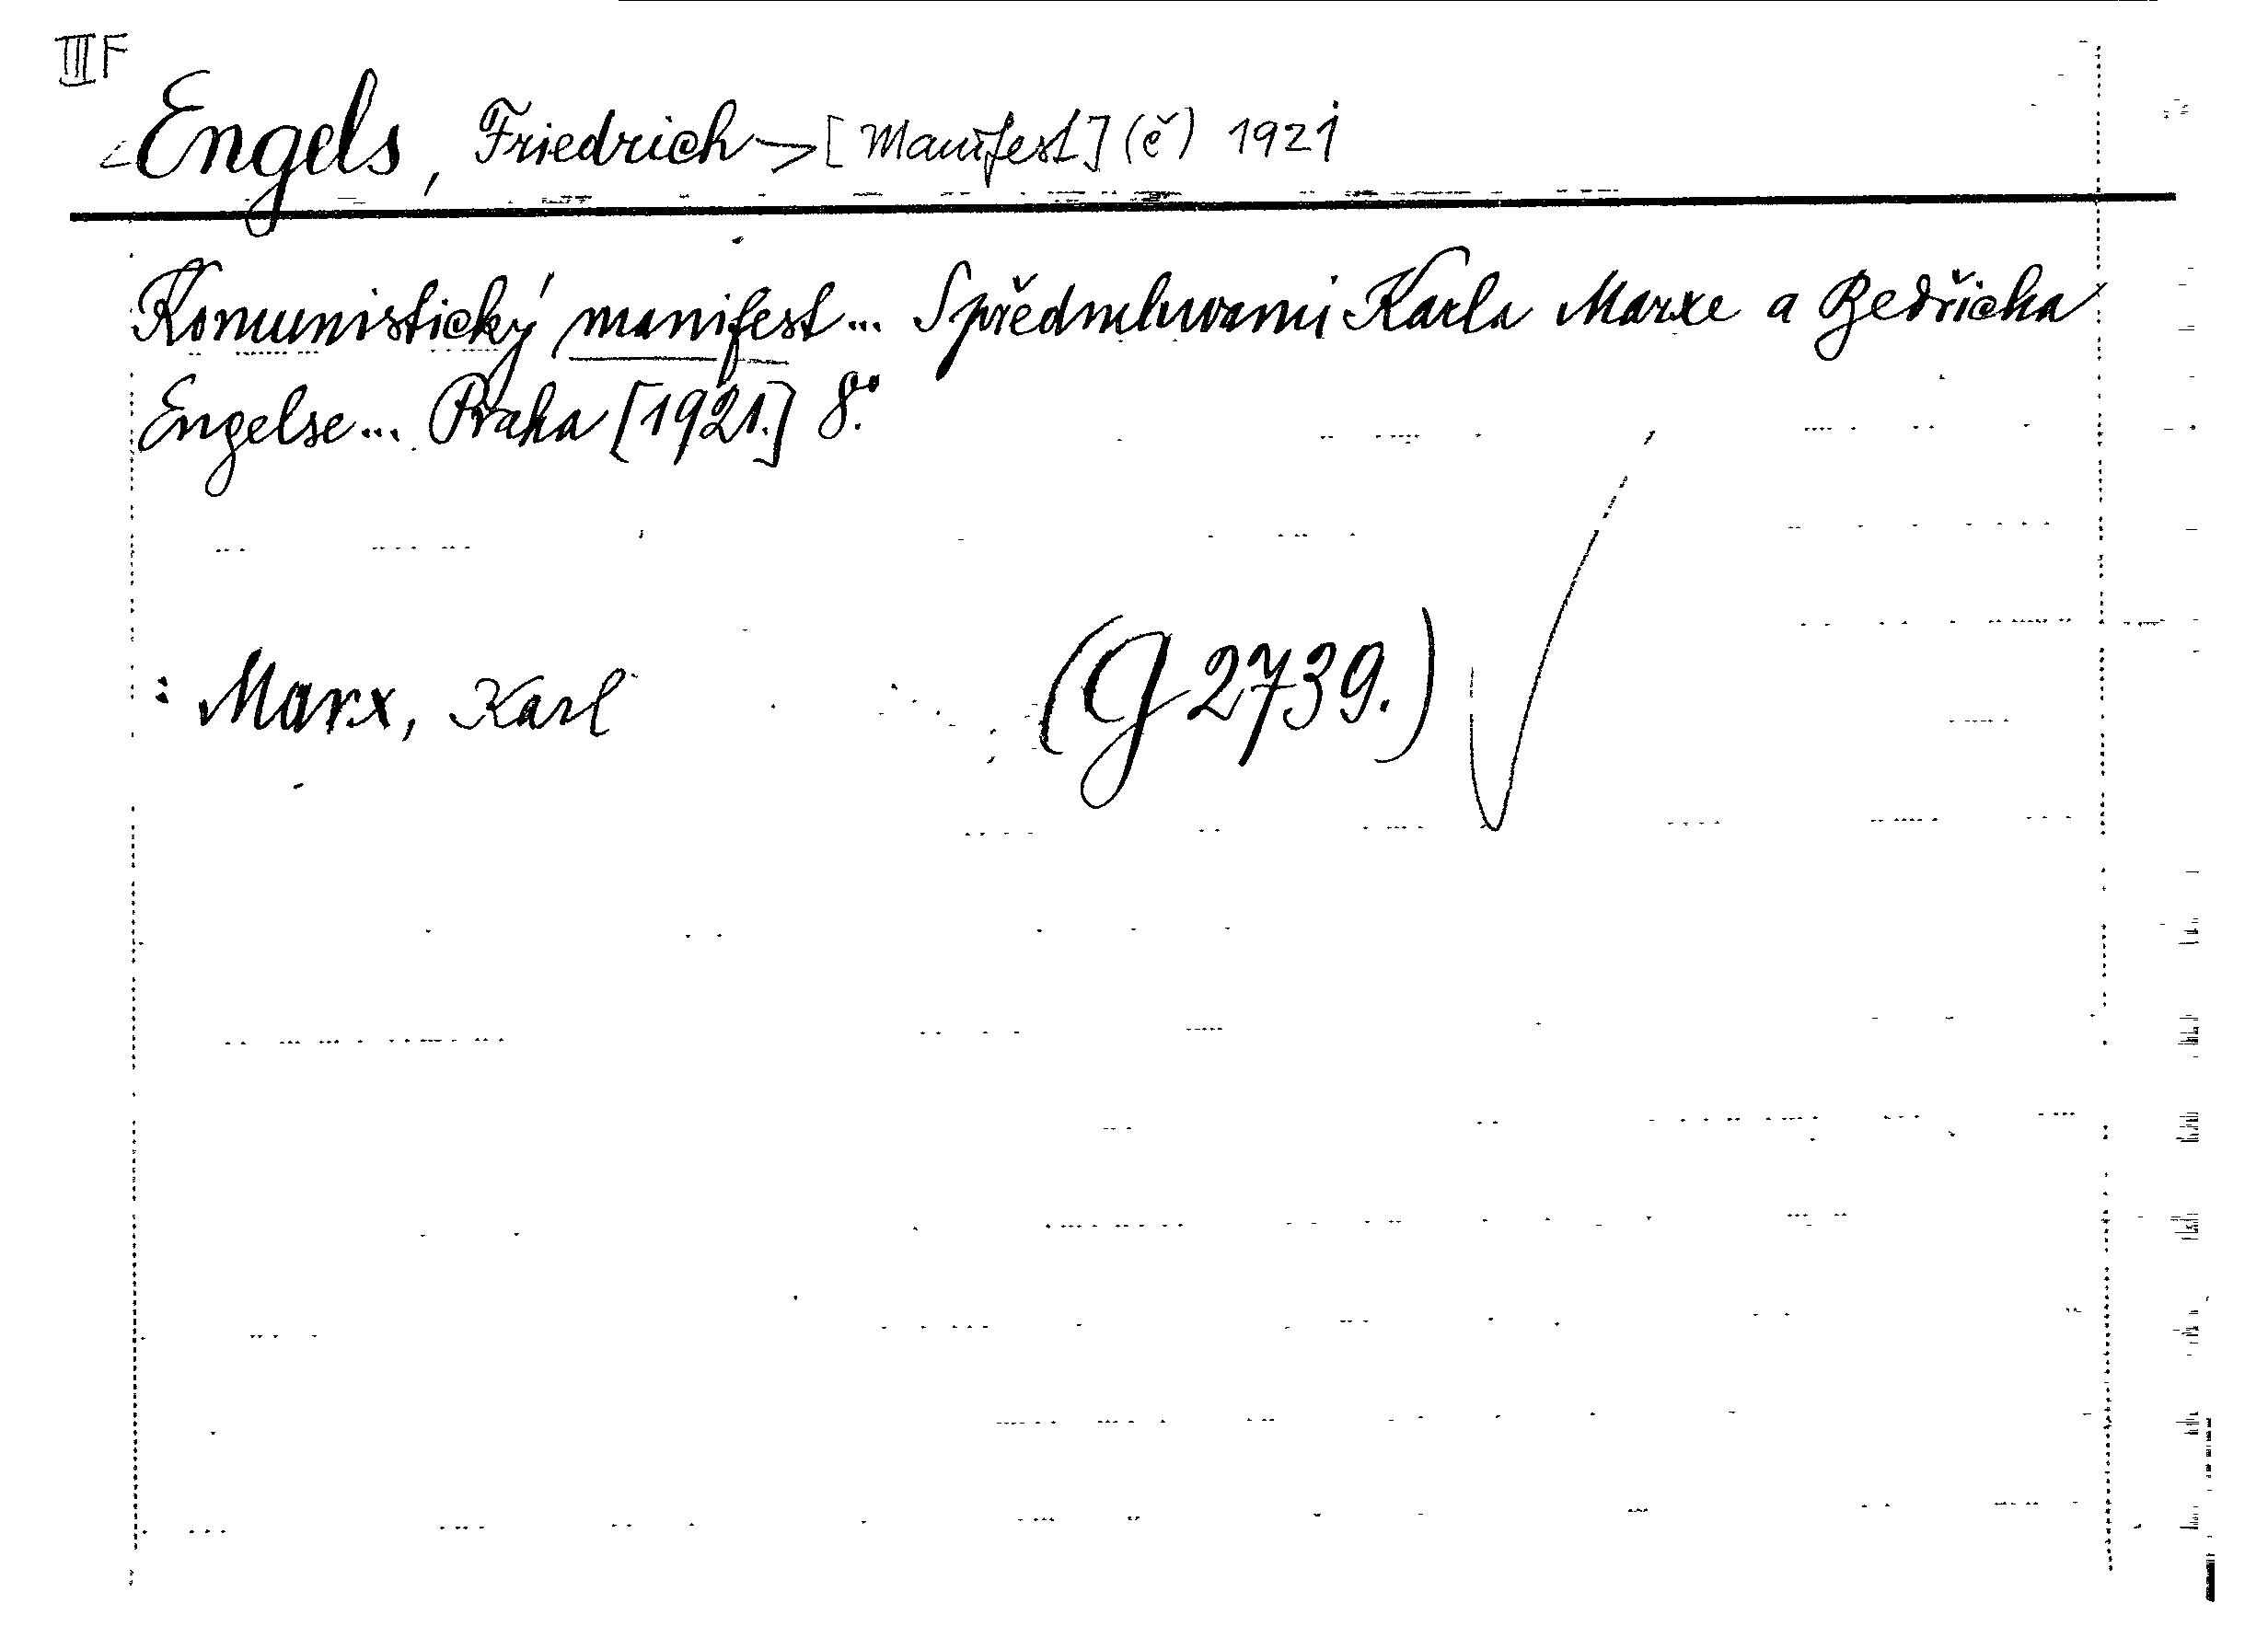 III F
Engels, Friedrich → [Manifest] (č) 1921
Komunistický manifest... S předmluvami Karla Marxe a Bedřicha
Engelse... Praha [1921.] 8°.
: Marx, Karl (G 2739.)